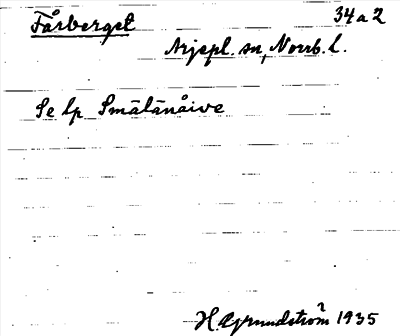 Fårberget 34a2
Arjepl. sn, Norrb. l.
Se lp Smālānåive
H. Grundström 1935